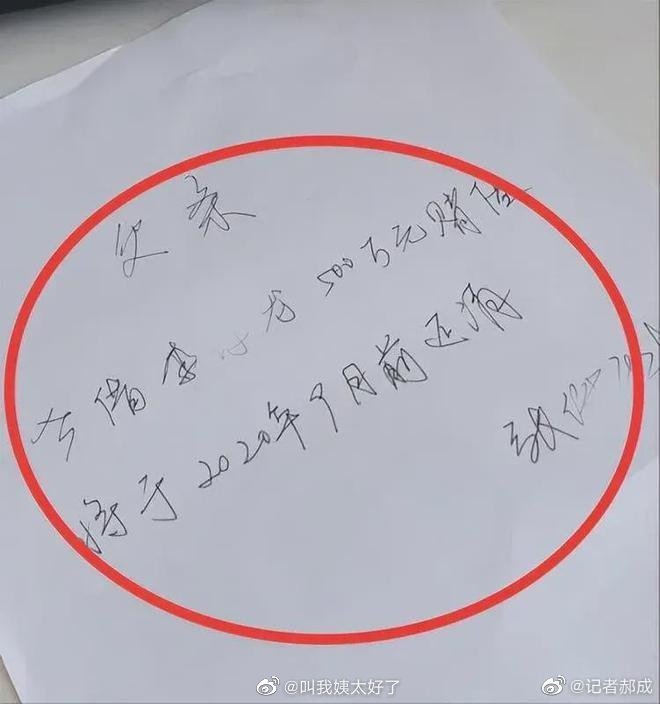 欠条
今借李小龙500万元赌债
将于2020年9月前还清
@叫我姨太好了
@记者郝成